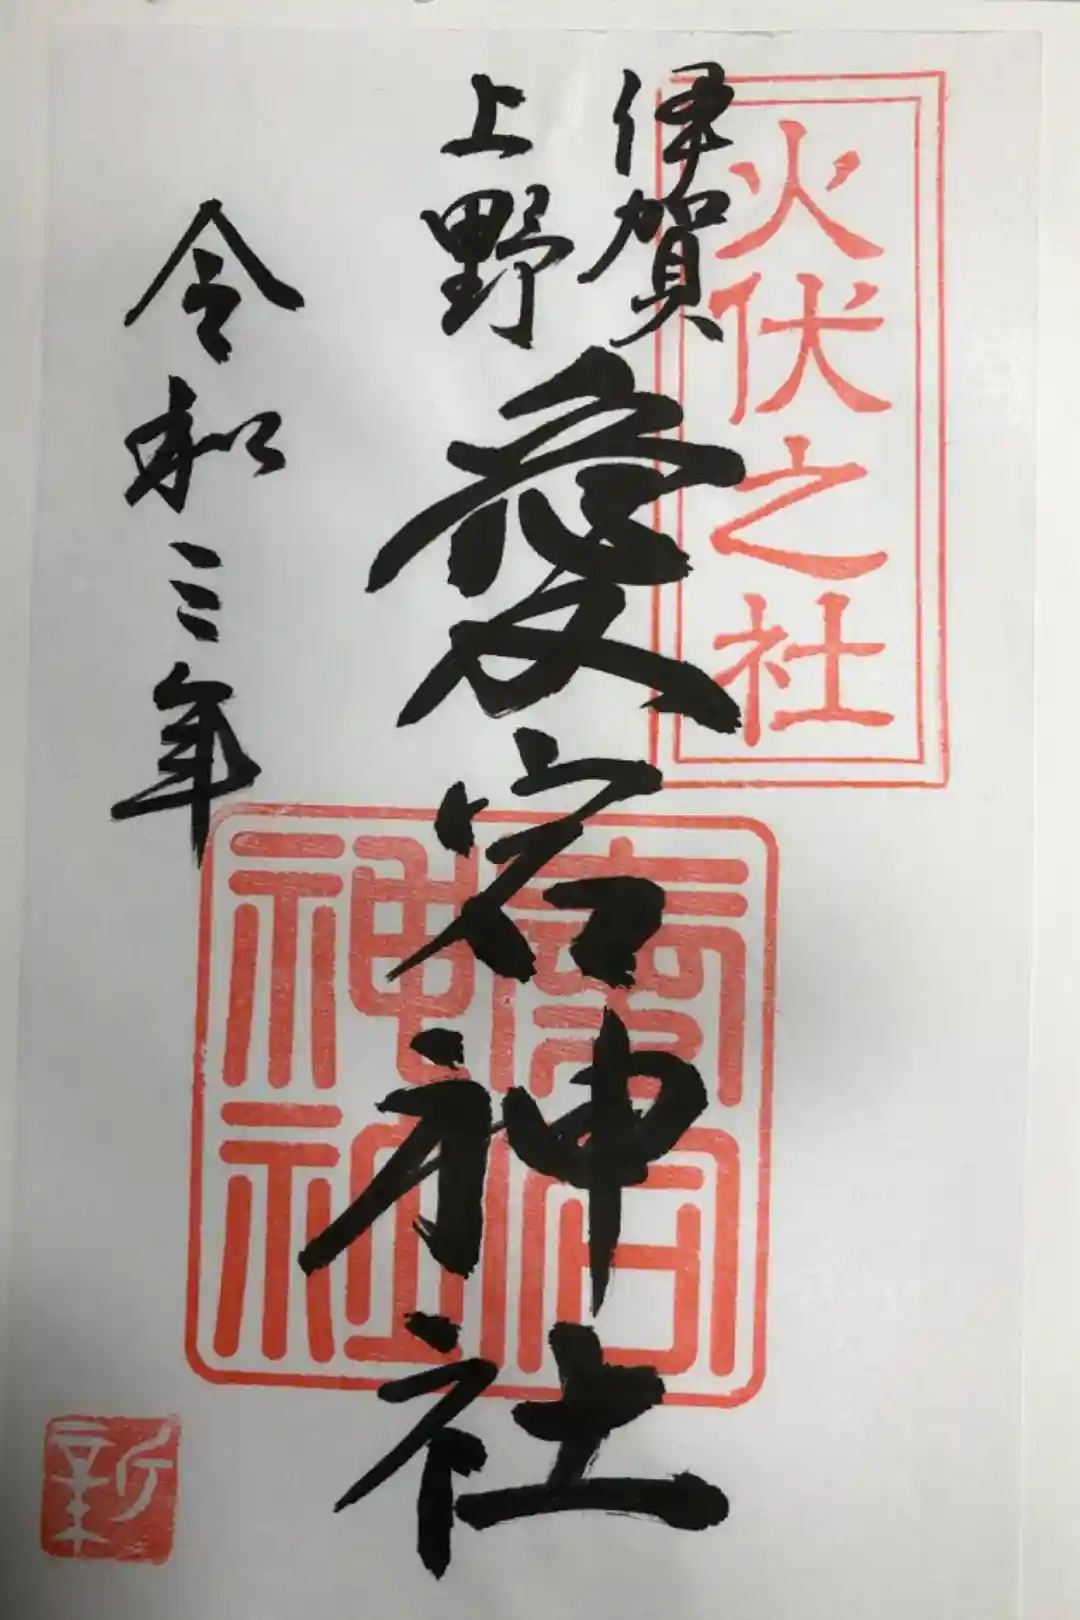 火伏之社
伊賀
上野
愛宕神社
令和三年
愛宕
神社
新